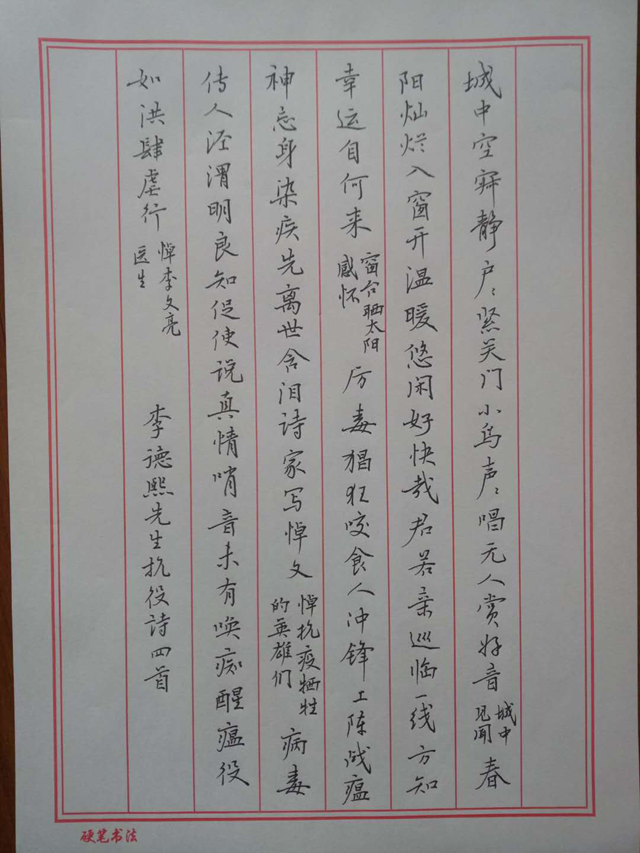 城中空寂静户々紧关门小鸟声々唱无人赏好音城中见闻春
阳灿烂入窗开温暖悠闲好快哉君若亲巡临一线方知
幸运自何来窗台晒太阳感怀厉毒猖狂咬食人冲锋上阵战瘟
神忘身染疾先离世含泪诗家写悼文悼抗疫牺牲的英雄们病毒
传人泾渭明良知促使说真情哨音未有唤痴醒瘟役
如洪肆虐行悼李文亮医生李德熙先生抗役詩四首
硬笔书法